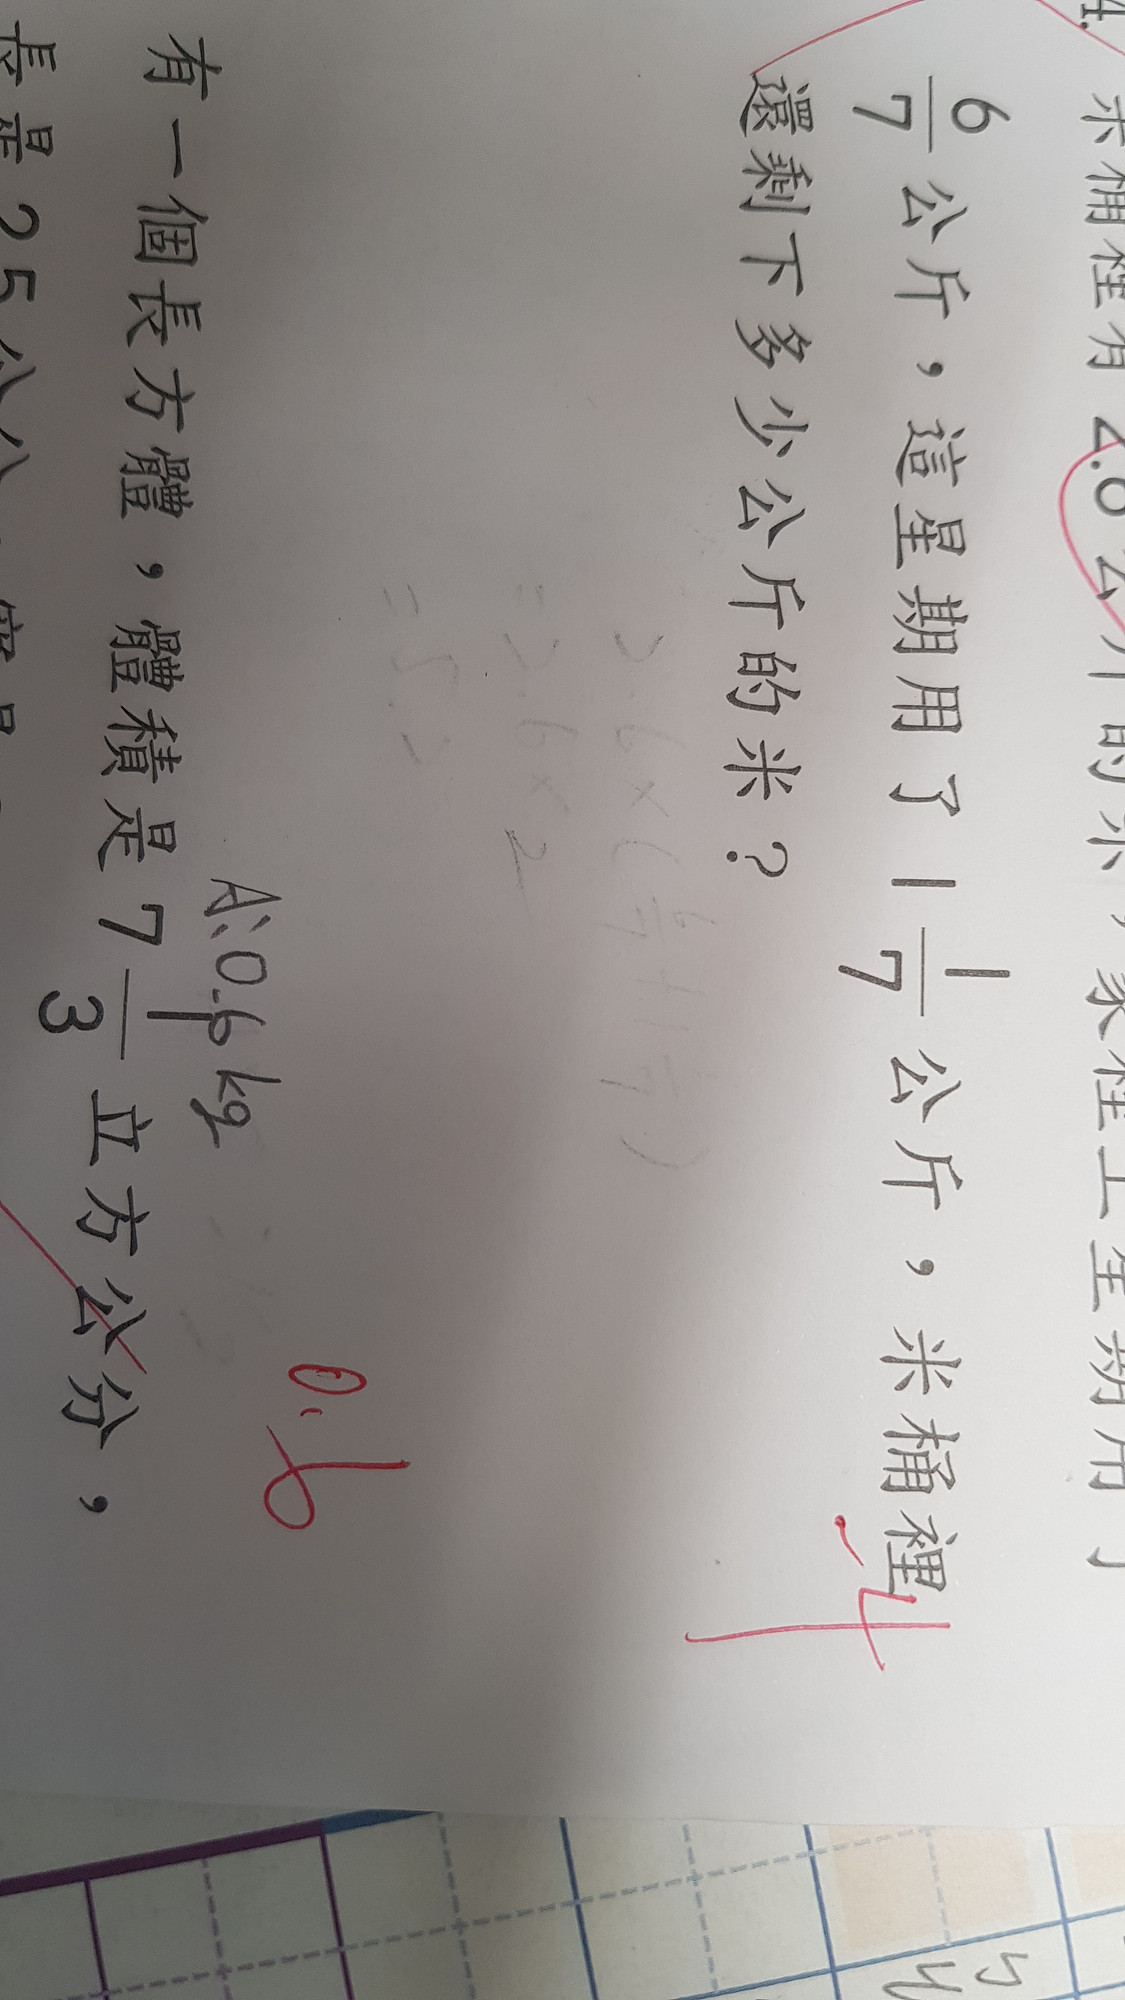 4.
米桶裡有2.6公斤的米,家裡上星期用了
6/7公斤,這星期用了1 1/7公斤,米桶裡
-4
還剩下多少公斤的米?
2.6×(6/7+1 1/7)
=2.6×2
=5.2
0.6
A:0.6kg
有一個長方體,體積是7 1/3立方公分,
長是25公分